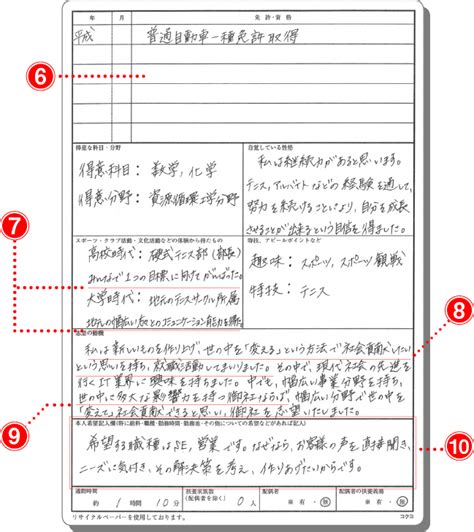 年 月 免許・資格
平成 普通自動車一種免許取得
6
得意な科目・分野
得意科目：数学，化学
得意分野：資源循環工学分野
自覚している性格
私は継続力があると思います。
テニス，アルバイトなどの経験を通して，
努力を続けることにより，自分を成長
させることが出来るという自信を得ました。
7
スポーツ・クラブ活動・文化活動などの体験から得たもの
高校時代：硬式テニス部（部長）
みんなで1つの目標に向けてがんばった。
大学時代：地元のテニスサークル所属
地元の幅広い方とのコミュニケーション能力を得た。
特技、アピールポイントなど
趣味：スポーツ，スポーツ観戦
特技：テニス
8
志望の動機
私は新しいものを作り上げ，世の中を「変える」という方法で社会貢献したい
という思いを持ち，就職活動をしてまいりました。その中で，現代社会の先進を
行くIT業界に興味を持ちました。中でも，幅広い事業分野を持ち，
世の中に多大な影響力を持つ御社ならば，幅広い分野で世の中を
「変えて」社会貢献できると思い，御社を志望いたしました。
9
本人希望記入欄（特に給料・職種・勤務時間・勤務地・その他についての希望などがあれば記入）
希望する職種はSE，営業です。なぜなら，お客様の声を直接聞き，
ニーズに気付き，その解決策を考え，作りあげたいからです。
10
通勤時間 約 1 時間 10 分
扶養家族数（配偶者を除く） 0 人
配偶者 ※ 有・無
配偶者の扶養義務 ※ 有・無
リサイクルペーパーを使用しております。 コクヨ